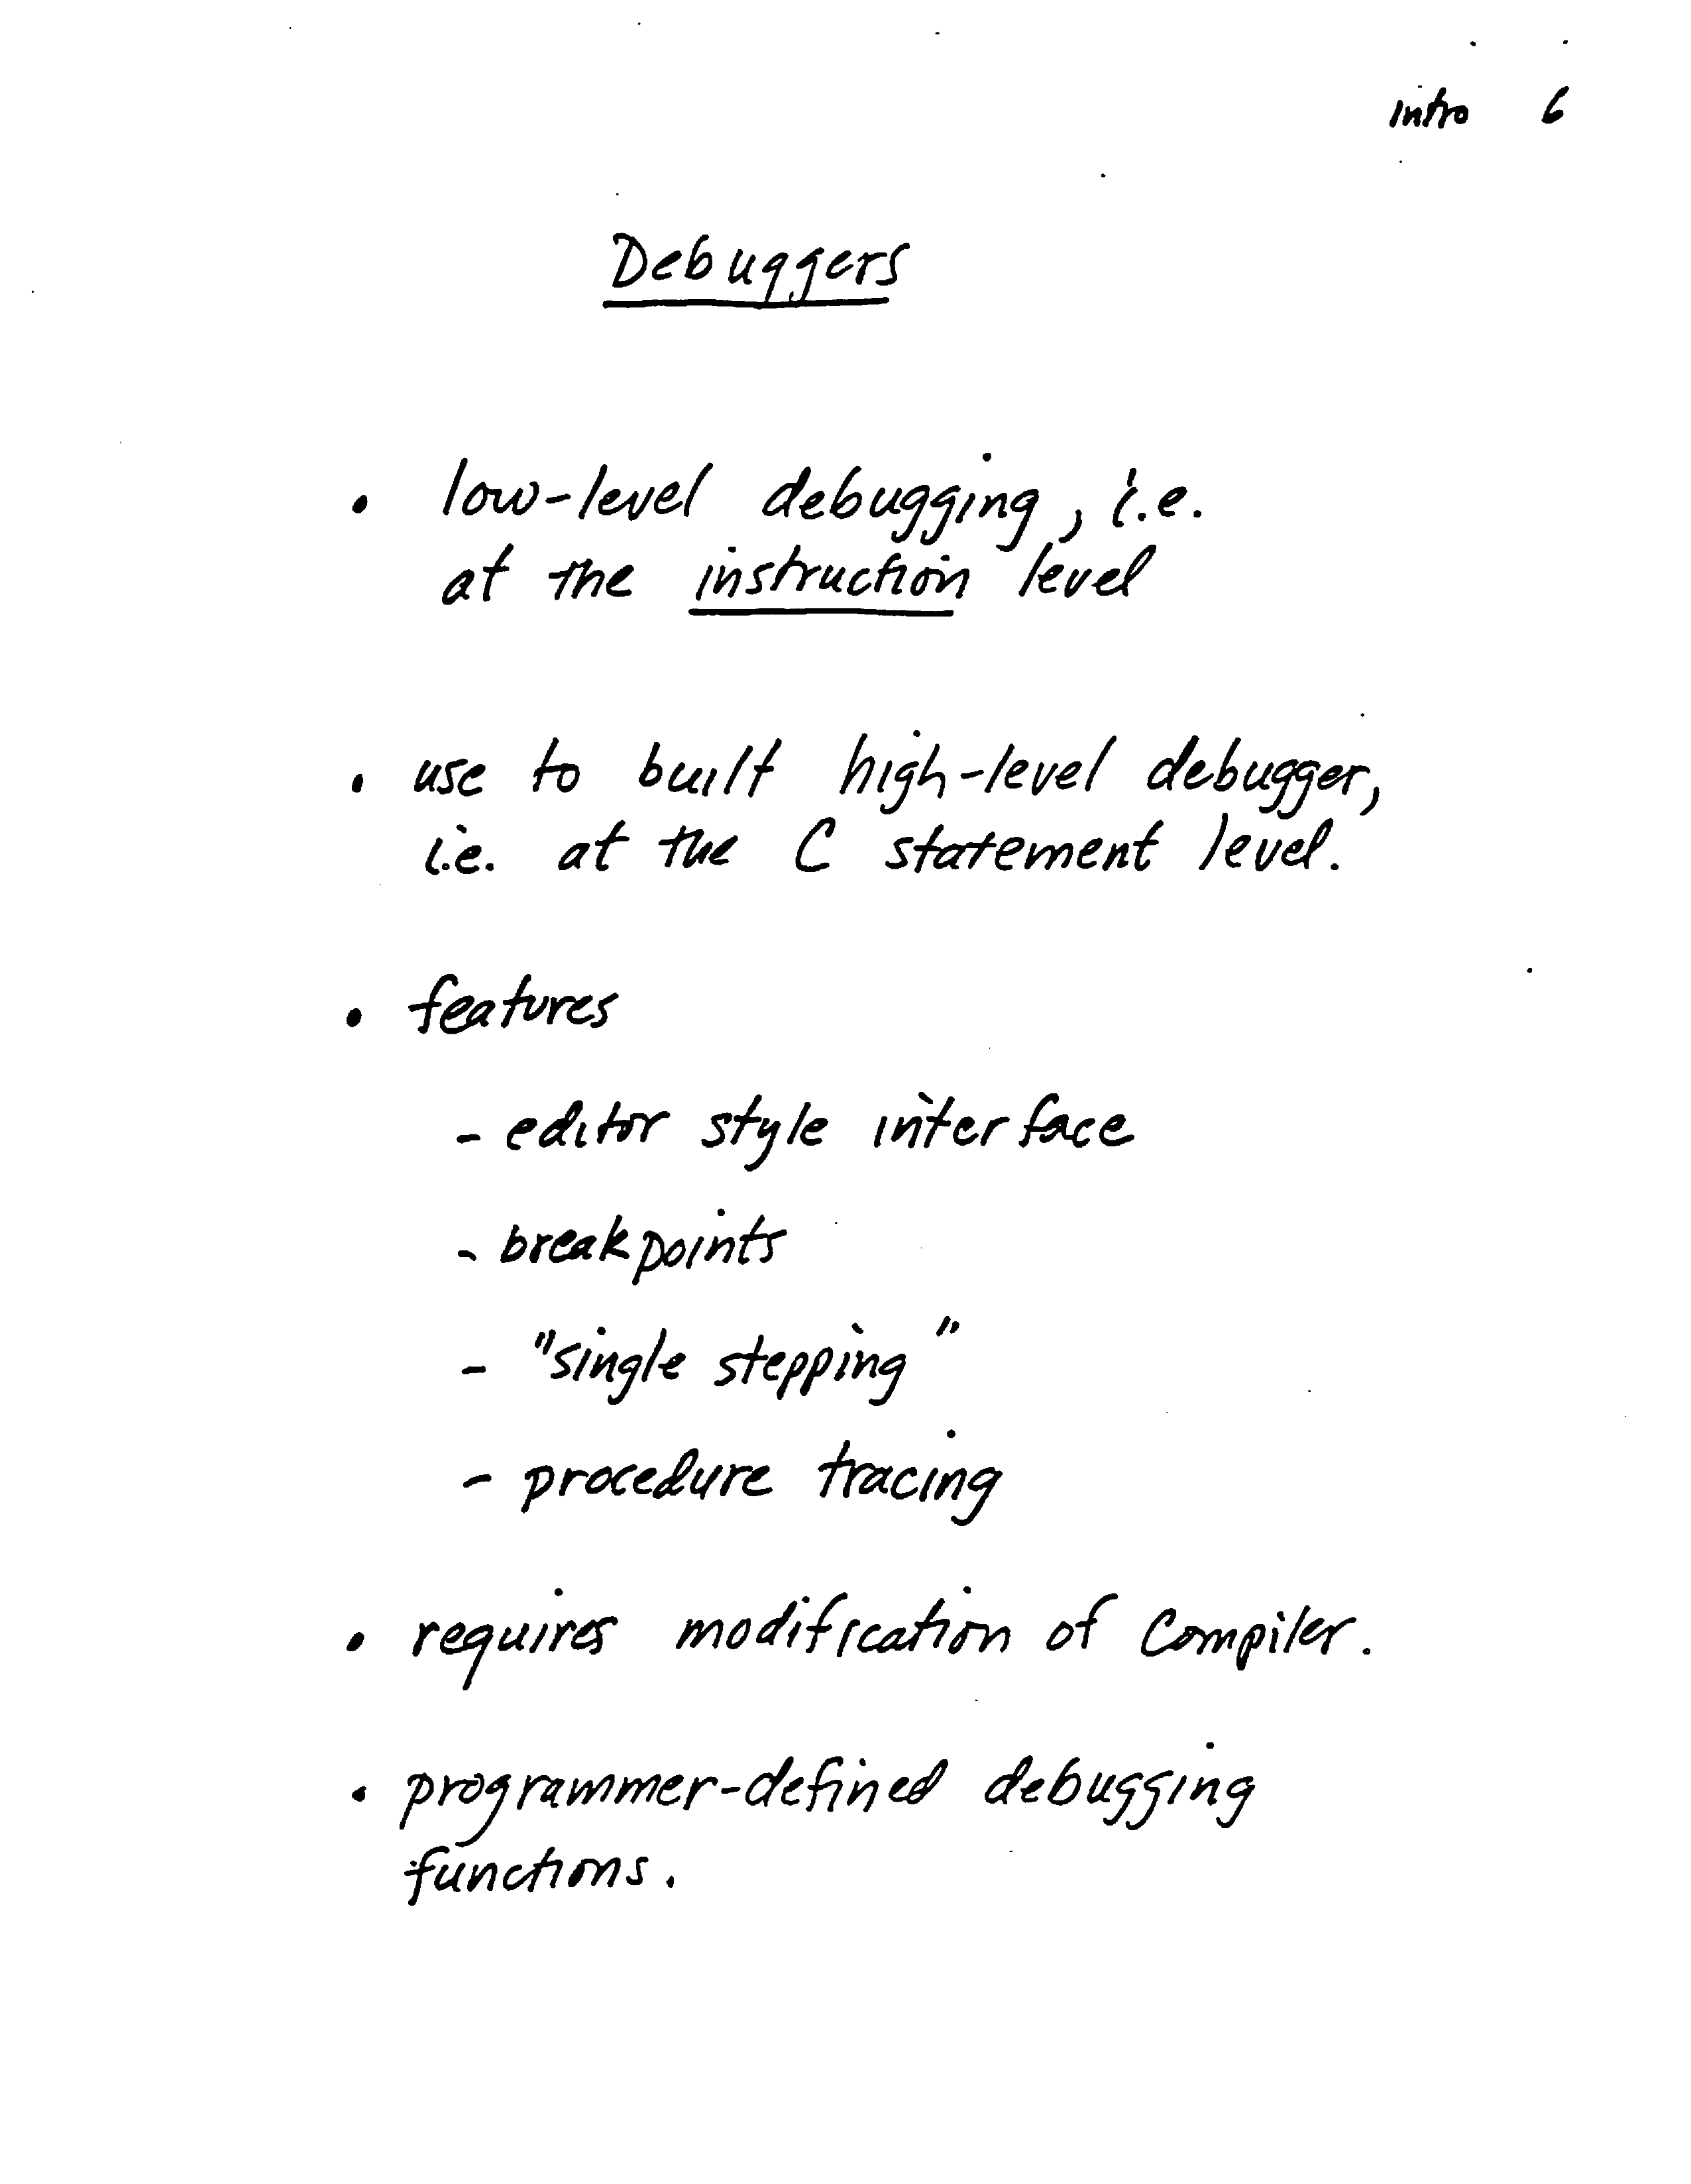 Intro 6
Debuggers
• low-level debugging, i.e.
at the instruction level
• use to built high-level debugger,
i.e. at the C statement level.
• features
- editor style interface
- breakpoints
- "single stepping"
- procedure tracing
• requires modification of Compiler.
• programmer-defined debugging
functions.